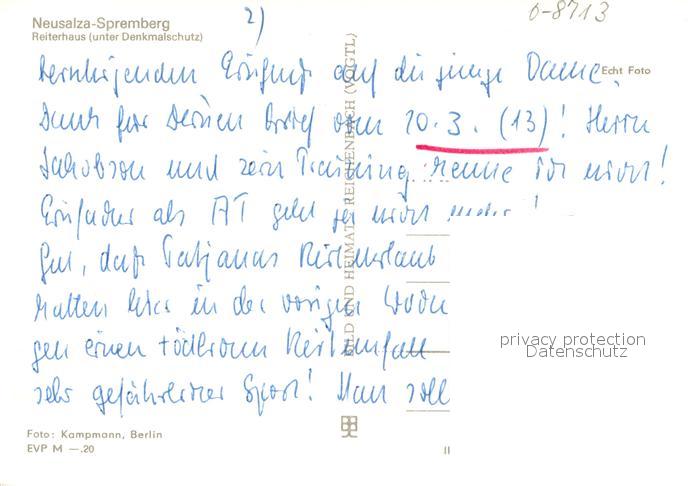 2)
0-8713
Neusalza-Spremberg
Reiterhaus (unter Denkmalschutz)
Echt Foto
beruhigenden Einfluß auf die junge Dame.
Dank für Deinen Brief vom 10.3. (13)! Herrn
Jakobson und sein Training kenne ich nicht!
Einfacher als AT geht es nicht mehr!
Gut, daß Tatjanas Reiturlaub
hatten hier in der vorigen Woche
gen einen tödlichen Reitunfall
sehr gefährlicher Sport! Man soll
BILD UND HEIMAT REICHENBACH (VOGTL)
privacy protection
Datenschutz
Foto: Kampmann, Berlin
EVP M —.20
II